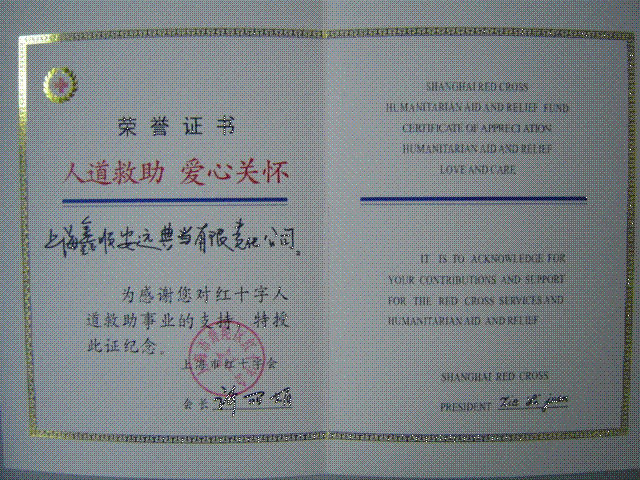 荣誉证书
人道救助 爱心关怀
上海鑫顺安远典当有限责任公司。
为感谢您对红十字人
道救助事业的支持，特授
此证纪念。
上海市红十字会
会长
SHANGHAI RED CROSS
HUMANITARIAN AID AND RELIEF FUND
CERTIFICATE OF APPRECIATION
HUMANITARIAN AID AND RELIEF
LOVE AND CARE
IT IS TO ACKNOWLEDGE FOR
YOUR CONTRIBUTIONS AND SUPPORT
FOR THE RED CROSS SERVICES AND
HUMANITARIAN AID AND RELIEF
SHANGHAI RED CROSS
PRESIDENT